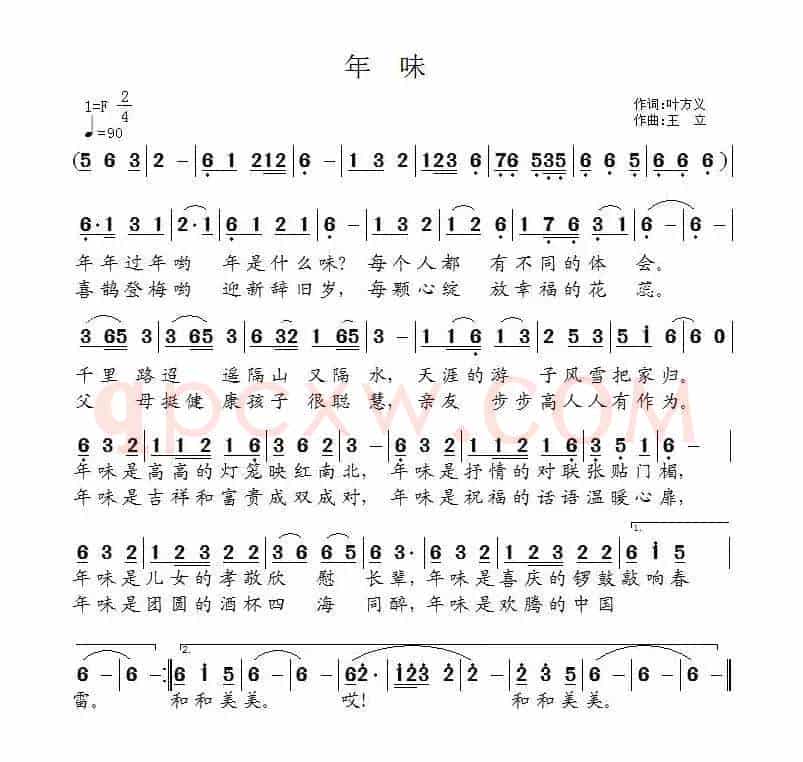 年 味
1=F 2/4
♩=90
作词:叶方义
作曲:王 立
(5 6 3 | 2 - | 6 1 212 | 6 - | 1 3 2 | 123 6 | 76 535 | 6 6 5 | 6 6 6 )
6·1 3 1 | 2·1 | 6 1 2 1 | 6 - | 1 3 2 | 1 2 6 | 1 7 6 3 1 | 6 - | 6 - |
年年过年哟 年是什么味? 每个人都 有不同的体 会。
喜鹊登梅哟 迎新辞旧岁, 每颗心绽 放幸福的花 蕊。
3 65 3 2 | 3 65 3 | 6 32 1 65 | 3 - | 1 1 6 1 3 | 2 5 3 2 | 5 1 6 | 6 0 |
千里 路迢 遥隔山 又隔 水, 天涯的游 子风雪把家归。
父 母挺健 康孩子 很聪 慧, 亲友 步步高人人有作为。
6 3 2 | 1 1 2 1 6 | 3 6 2 | 3 - | 6 3 2 | 1 1 2 1 6 | 3 5 1 | 6 - |
年味是高高的灯笼映红南北, 年味是抒情的对联张贴门楣,
年味是吉祥和富贵成双成对, 年味是祝福的话语温暖心扉,
1.
6 3 2 | 1 2 3 2 | 3 6 6 5 | 6 3· | 6 3 2 | 1 2 3 2 2 | 6 1 5 |
年味是儿女的孝敬欣 慰 长辈,年味是喜庆的锣鼓敲响春
年味是团圆的酒杯四 海 同醉,年味是欢腾的中国
2.
6 - | 6 - :| 6 1 5 | 6 - | 6 - | 62· | 123 2 | 2 - | 2 - | 2 3 5 | 6 - | 6 - | 6 - |
雷。 和和美美。 哎! 和和美美。
qpcxw.com